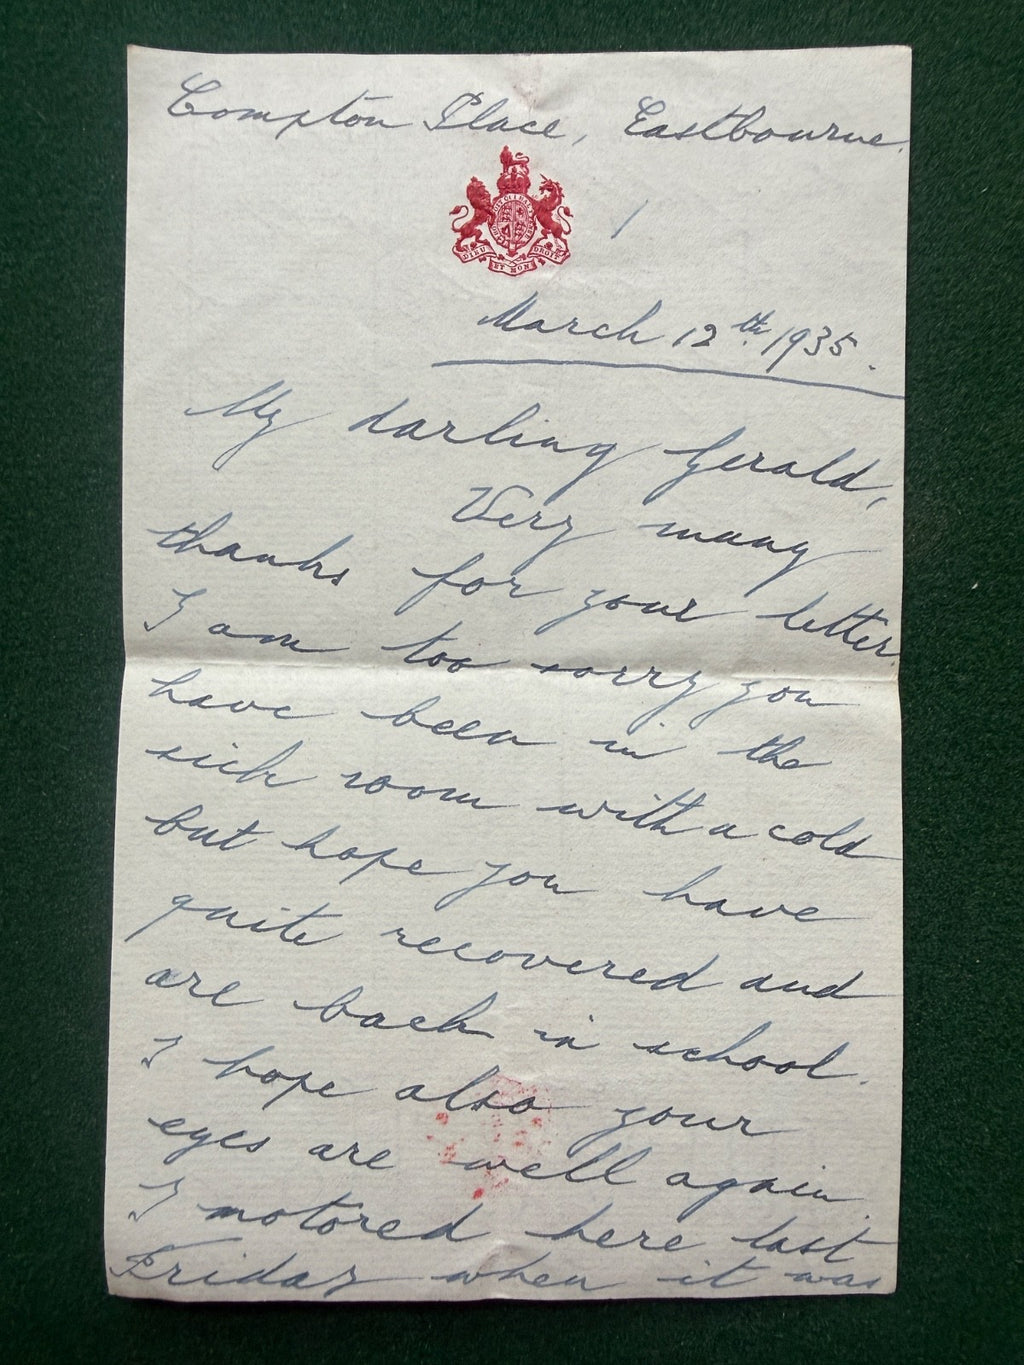 Compton Place, Eastbourne.
DIEU ET MON DROIT
1
March 12th. 1935.
My darling Gerald,
Very many
thanks for your letter.
I am too sorry you
have been in the
sick room with a cold
but hope you have
quite recovered and
are back in school.
I hope also your
eyes are well again.
I motored here last
Friday when it was